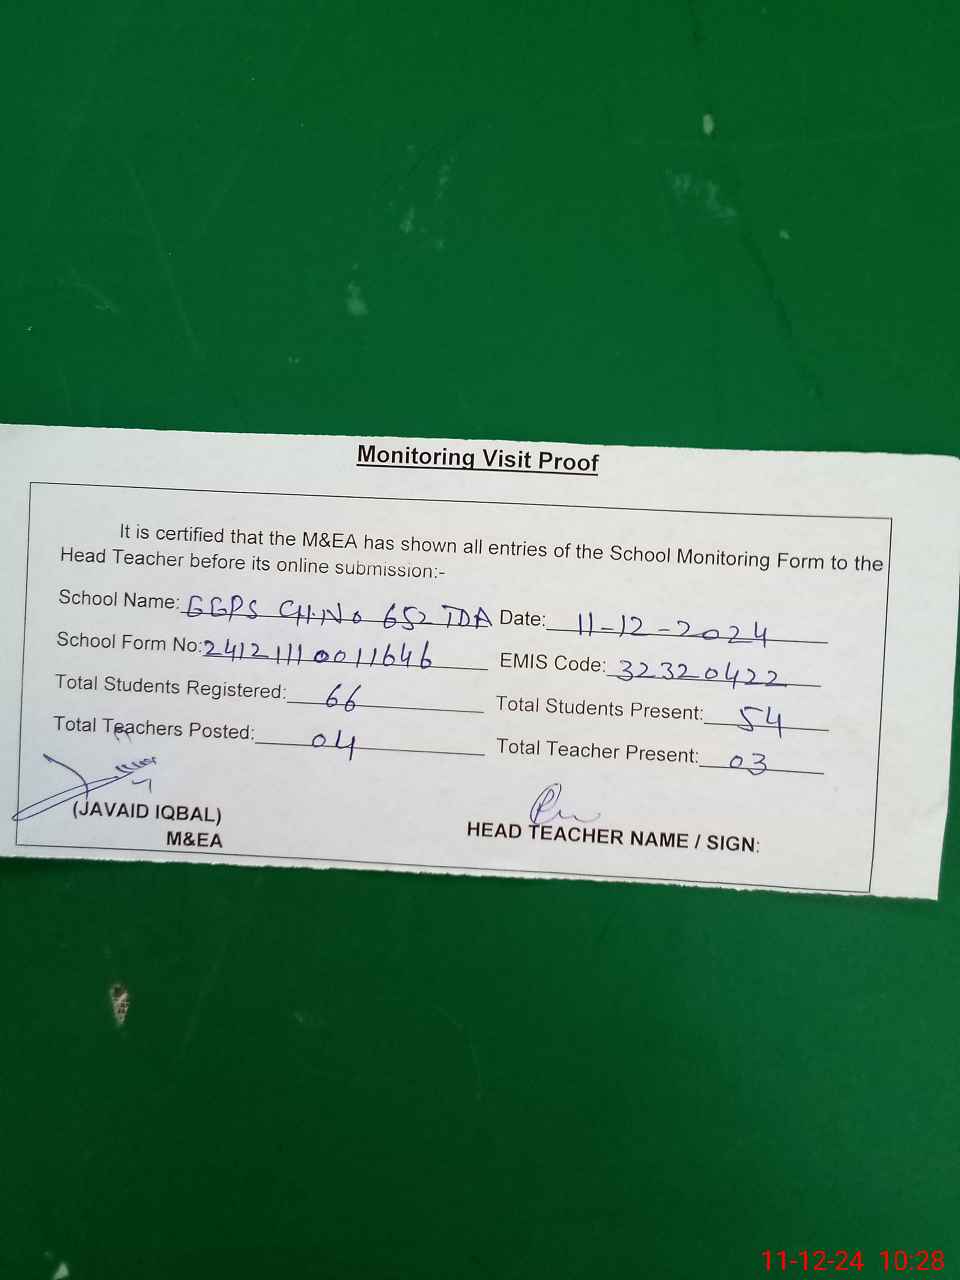 Monitoring Visit Proof
It is certified that the M&EA has shown all entries of the School Monitoring Form to the
Head Teacher before its online submission:-
School Name: GGPS CH.No 652 TDA Date: 11-12-2024
School Form No: 2412111 0011646 EMIS Code: 32320422
Total Students Registered: 66 Total Students Present: 54
Total Teachers Posted: 04 Total Teacher Present: 03
(JAVAID IQBAL)
M&EA
HEAD TEACHER NAME / SIGN:
11-12-24 10:28